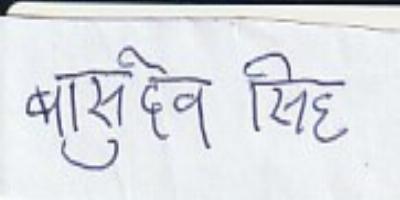 बासुदेव सिंह